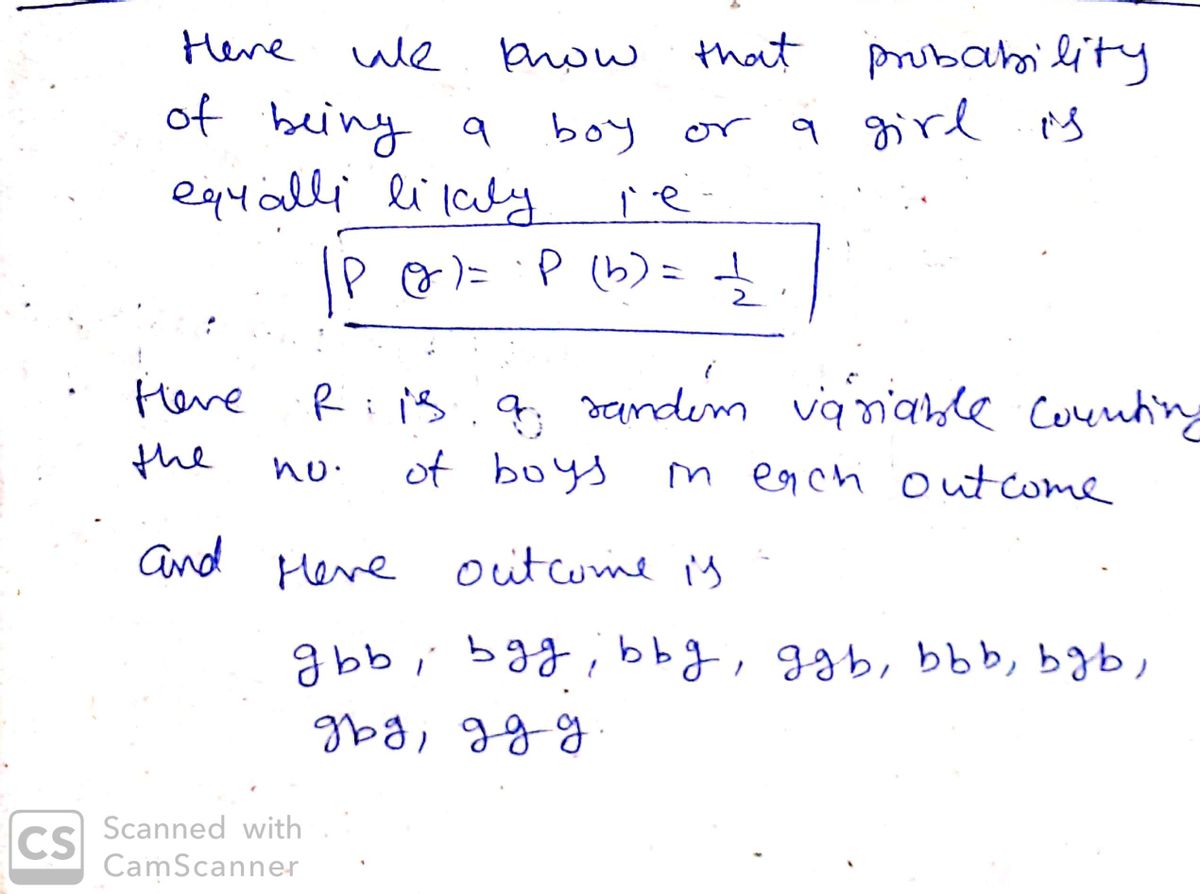 Here we know that probability
of being a boy or a girl is
equalli likely i.e.
P(g) = P(b) = 1/2
Here R: is a random variable counting
the no. of boys in each outcome
and Here outcome is
gbb, bgg, bbg, ggb, bbb, bgb,
gbg, ggg.
CS Scanned with
CamScanner